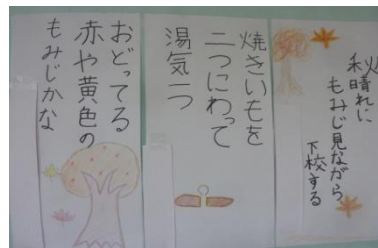 秋晴れに
もみじ見ながら
下校する
焼きいもを
二つにわって
湯気一つ
おどってる
赤や黄色の
もみじかな